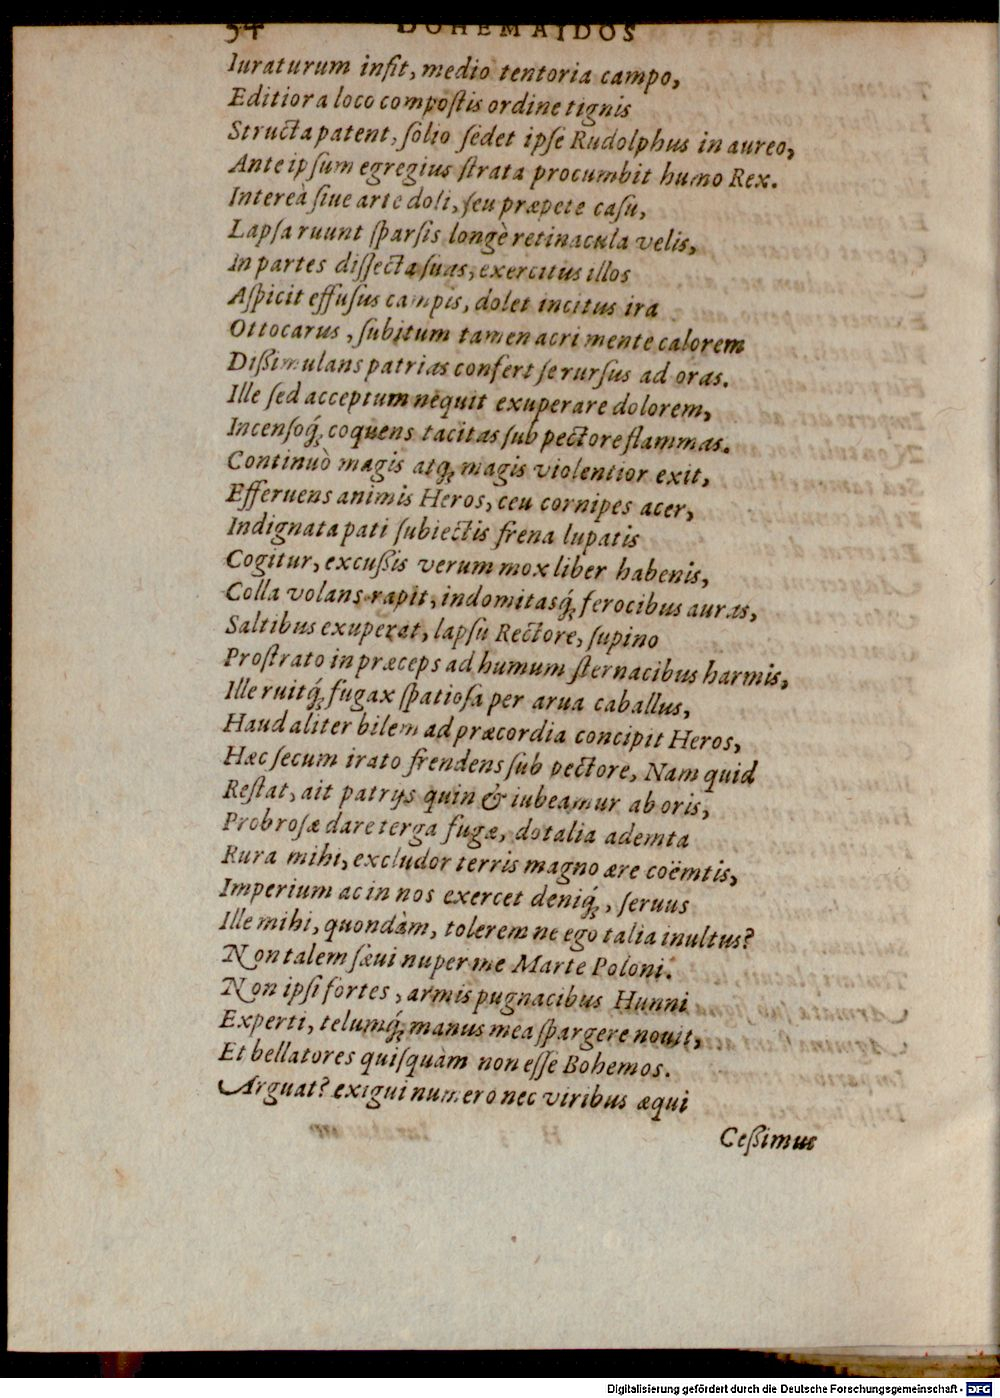 54 BOHEMAIDOS
Iuraturum inſit, medio tentoria campo,
Editiora loco compoſtis ordine tignis
Structa patent, ſolio ſedet ipſe Rudolphus in aureo,
Ante ipſum egregius ſtrata procumbit humo Rex.
Intereà ſiue arte doli, ſeu præpete caſu,
Lapſa ruunt ſparſis longè retinacula velis,
In partes diſſecta ſuas, exercitus illos
Aſpicit effuſus campis, dolet incitus ira
Ottocarus, ſubitum tamen acri mente calorem
Dißimulans patrias confert ſe rurſus ad oras.
Ille ſed acceptum nequit exuperare dolorem,
Incenſoq́ꝫ coquens tacitas ſub pectore flammas.
Continuò magis atqꝫ magis violentior exit,
Efferuens animis Heros, ceu cornipes acer,
Indignata pati ſubiectis frena lupatis
Cogitur, excußis verum mox liber habenis,
Colla volans rapit, indomitasq́ꝫ ferocibus auras,
Saltibus exuperat, lapſu Rectore, ſupino
Proſtrato in præceps ad humum ſternacibus harmis,
Ille ruitq́ꝫ fugax ſpatioſa per arua caballus,
Haud aliter bilem ad præcordia concipit Heros,
Hæc ſecum irato frendens ſub pectore, Nam quid
Reſtat, ait patrijs quin & iubeamur ab oris,
Probroſæ dare terga fugæ, dotalia ademta
Rura mihi, excludor terris magno ære coëmtis,
Imperium ac in nos exercet deniq́ꝫ, ſeruus
Ille mihi, quondàm, tolerem ne ego talia inultus?
Non talem ſæui nuper me Marte Poloni.
Non ipſi fortes, armis pugnacibus Hunni
Experti, telumq́ꝫ manus mea ſpargere nouit,
Et bellatores quiſquàm non eſſe Bohemos.
Arguat? exigui numero nec viribus æqui
Ceßimus
Digitalisierung gefördert durch die Deutsche Forschungsgemeinschaft - DFG